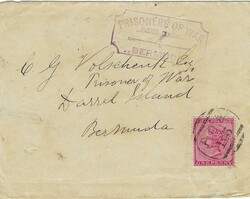 PRISONERS OF WAR
BERMUDA
C G Volschenk Esq
Prisoner of War
Darrel Island
Bermuda
ONE PENNY